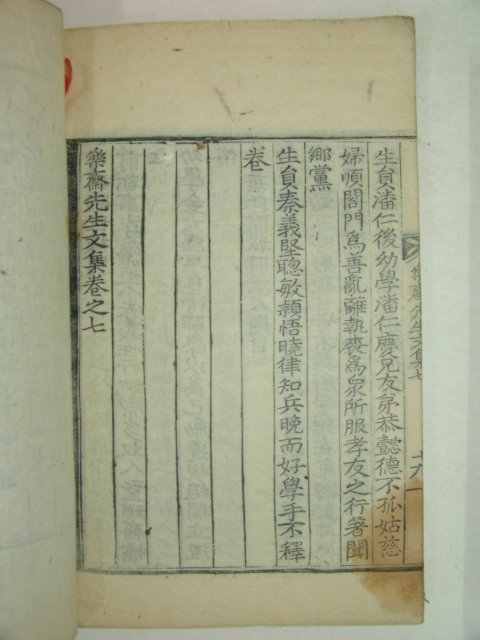 樂齋先生文集卷七 十六
生員潘仁後幼學潘仁慶兄友弟恭懿德不孤姑慈
婦順閤門爲善亂離執喪爲衆所服孝友之行著聞
鄕黨
生員秦義堅聰敏穎悟曉律知兵晩而好學手不釋
卷
樂齋先生文集卷之七